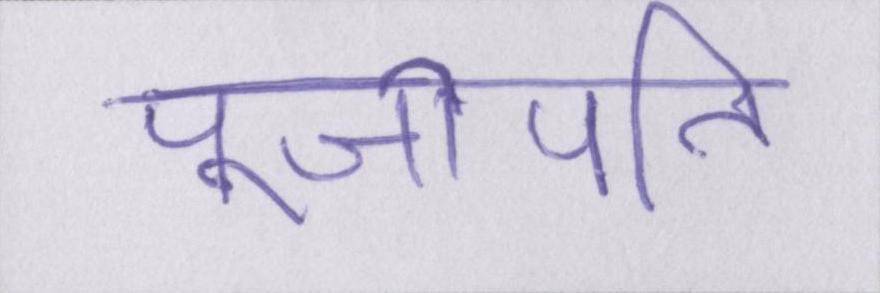 पूजीपति